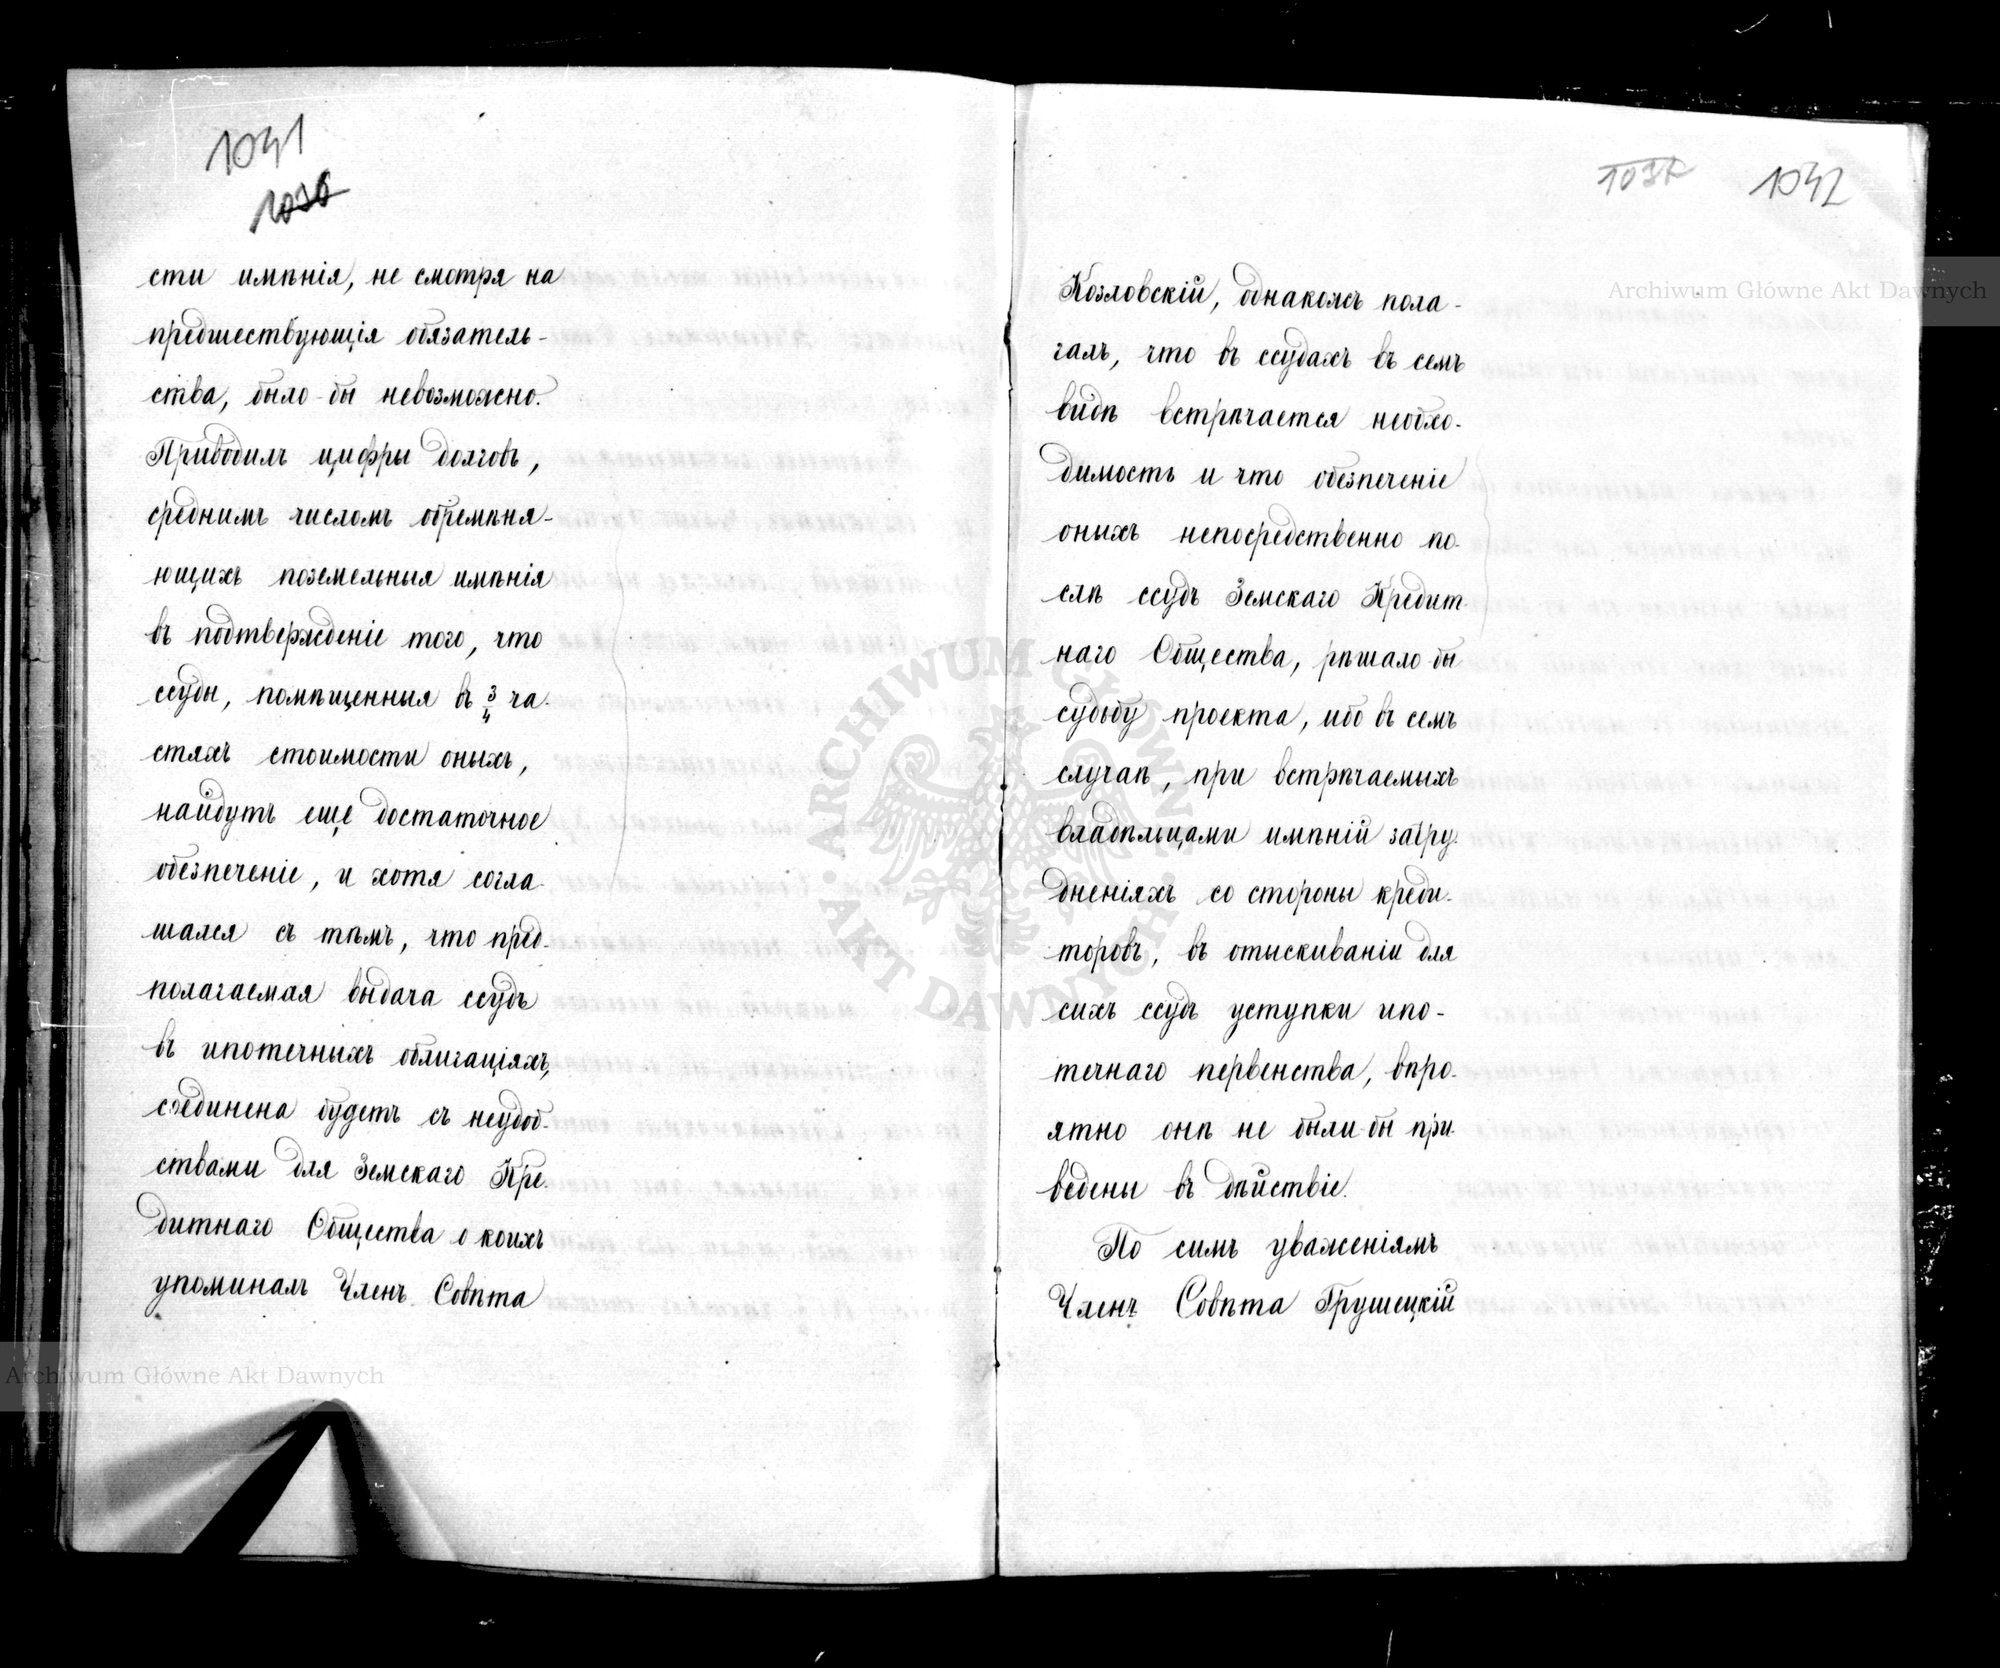 1041
1036
сти имѣнія, не смотря на
предшествующія обязатель-
ства, было-бы невозможно.
Приводилъ цифры долговъ,
среднимъ числомъ обремѣня-
ющихъ поземельныя имѣнія
въ подтвержденіе того, что
ссуды, помѣщенныя въ 3/4 ча-
стяхъ стоимости оныхъ,
найдутъ еще достаточное
обезпеченіе, и хотя согла-
шался съ тѣмъ, что пред-
полагаемая выдача ссудъ
въ ипотечныхъ облигаціяхъ,
соединена будетъ съ неудоб-
ствами для Земскаго Кре-
дитнаго Общества о коихъ
упоминалъ Членъ Совѣта
1042
Козловскій, однакожъ пола-
галъ, что въ ссудахъ въ семъ
видѣ встрѣчается необхо-
димость и что обезпеченіе
оныхъ непосредственно по-
слѣ ссудъ Земскаго Кредит-
наго Общества, рѣшало-бы
судьбу проекта, ибо въ семъ
случаѣ, при встрѣчаемыхъ
владѣльцами имѣній затру-
дненіяхъ со стороны креди-
торовъ, въ отыскиваніи для
сихъ ссудъ уступки ипо-
течнаго первенства, впро-
ятно онѣ не были-бы при-
ведены въ дѣйствіе.
По симъ уваженіямъ
Членъ Совѣта Грушецкій
Archiwum Główne Akt Dawnych
Archiwum Główne Akt Dawnych
ARCHIWUM GŁÓWNE AKT DAWNYCH